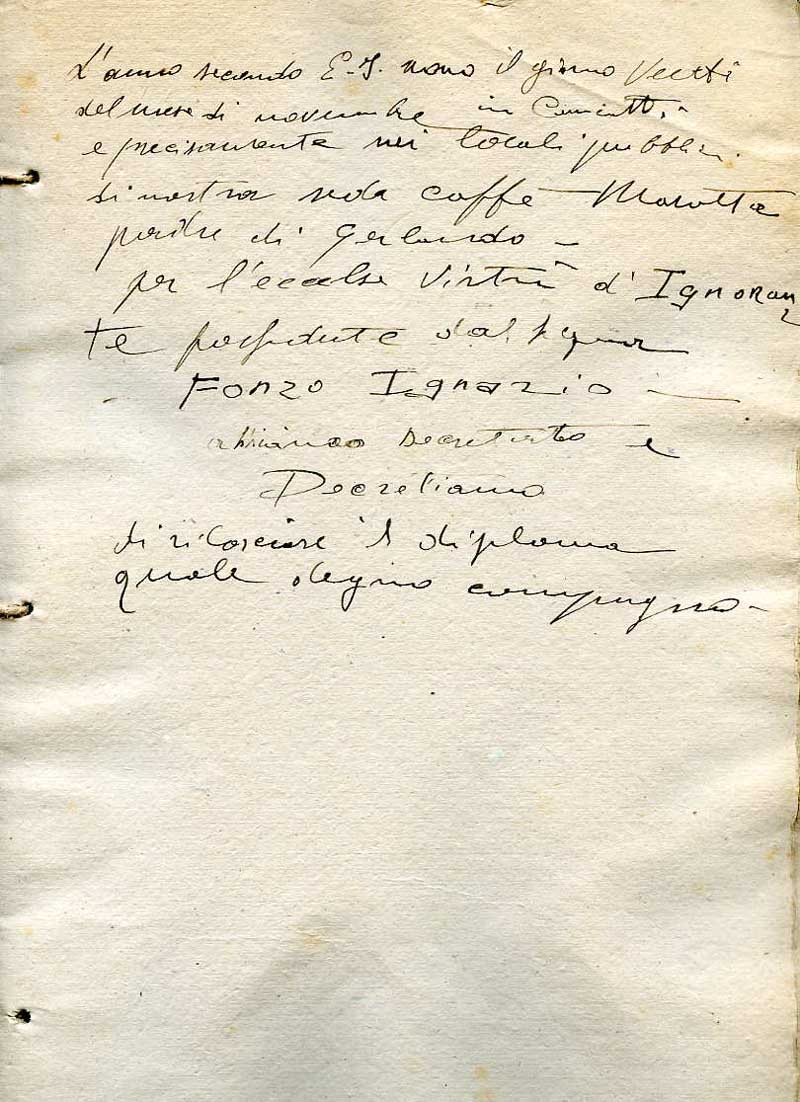 L'anno secondo E-I. nono il giorno Venti
del mese di novembre in Canicattì
e precisamente nei locali pubblici
di nostra sede caffè Marotta
padre di Gerlando —
per l'eccelse Virtù d'Ignoran
te possedute dal signor
Fonzo Ignazio —
abbiamo decretato e
Decretiamo
di rilasciare il diploma
quale degno compagno —